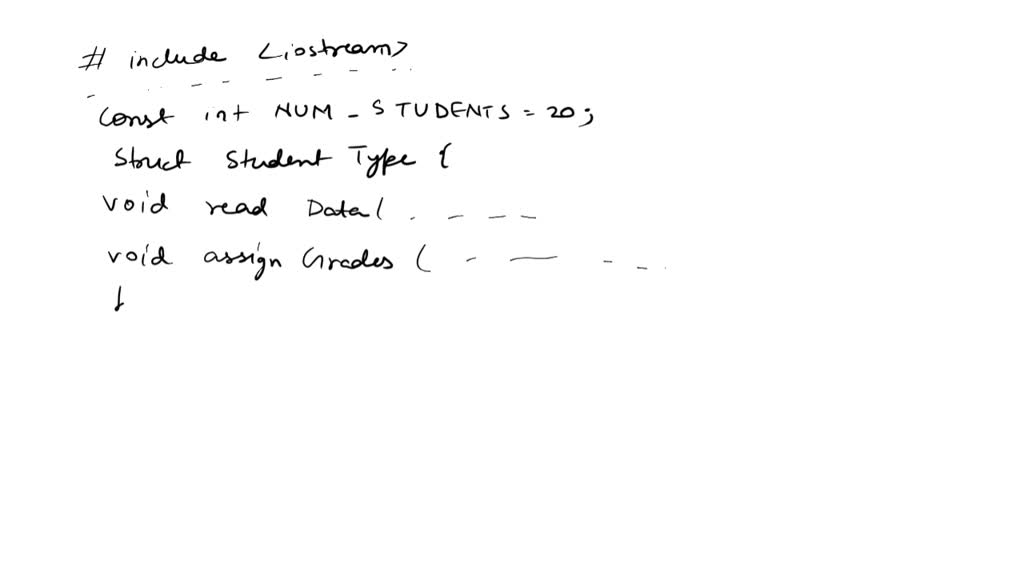 # include <iostream>
- - - - - - - -
const int NUM_STUDENTS = 20;
struct student Type {
void read Data( . - - -
void assign Grades ( - — - - .
}